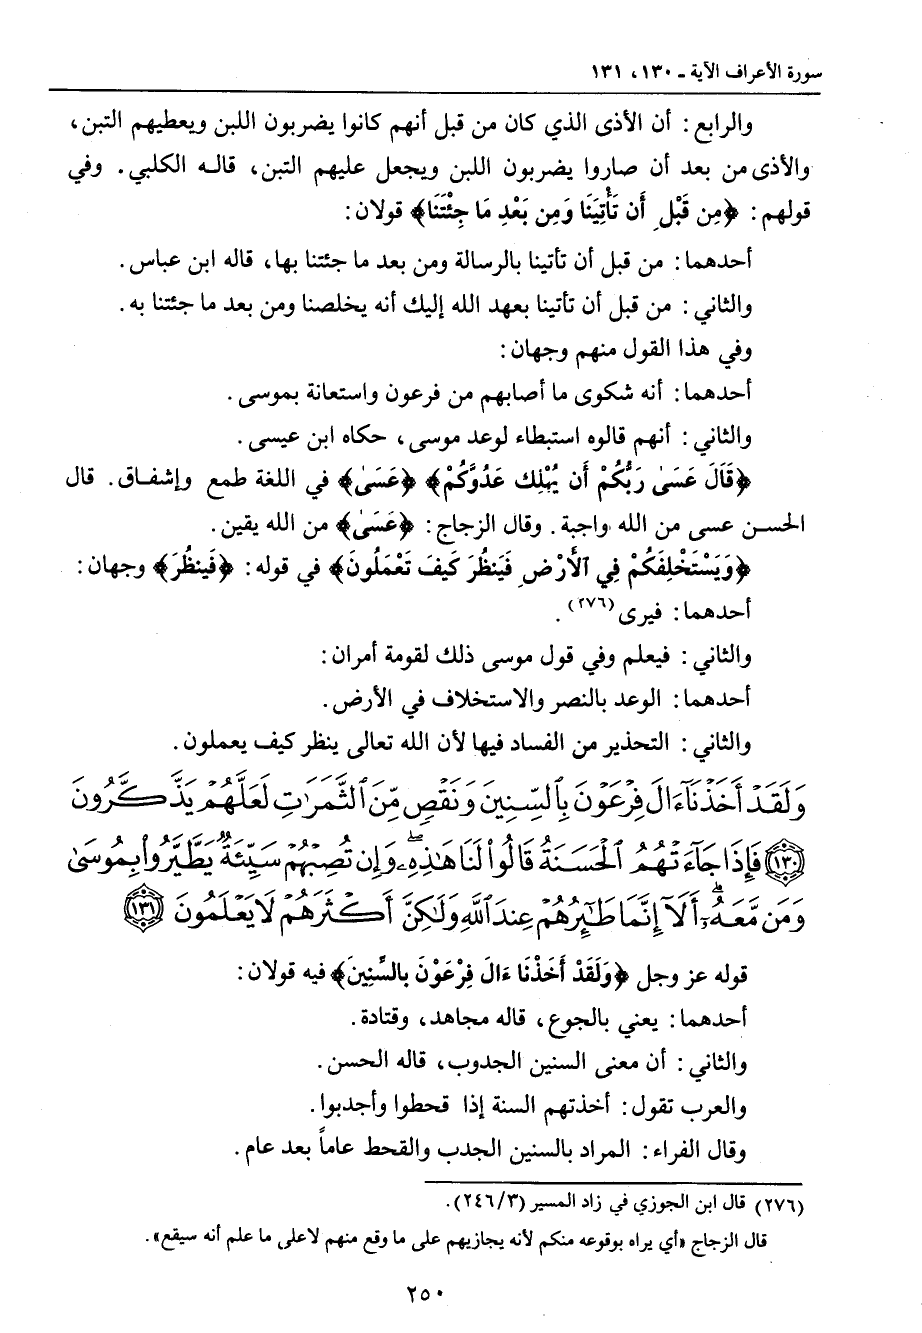 سورة الأعراف الآية ـ ١٣٠، ١٣١
والرابع: أن الأذى الذي كان من قبل أنهم كانوا يضربون اللبن ويعطيهم التبن،
والأذى من بعد أن صاروا يضربون اللبن ويجعل عليهم التبن، قاله الكلبي. وفي
قولهم: ﴿مِن قَبْلِ أَن تَأْتِيَنَا وَمِن بَعْدِ مَا جِئْتَنَا﴾ قولان:
أحدهما: من قبل أن تأتينا بالرسالة ومن بعد ما جئتنا بها، قاله ابن عباس.
والثاني: من قبل أن تأتينا بعهد الله إليك أنه يخلصنا ومن بعد ما جئتنا به.
وفي هذا القول منهم وجهان:
أحدهما: أنه شكوى ما أصابهم من فرعون واستعانة بموسى.
والثاني: أنهم قالوه استبطاء لوعد موسى، حكاه ابن عيسى.
﴿قَالَ عَسَى رَبُّكُمْ أَن يُهْلِكَ عَدُوَّكُمْ﴾ ﴿عَسَىٰ﴾ في اللغة طمع وإشفاق. قال
الحسن عسى من الله واجبة. وقال الزجاج: ﴿عَسَىٰ﴾ من الله يقين.
﴿وَيَسْتَخْلِفَكُمْ فِي ٱلْأَرْضِ فَيَنظُرَ كَيْفَ تَعْمَلُونَ﴾ في قوله: ﴿فَيَنظُرَ﴾ وجهان:
أحدهما: فيرى(٢٧٦).
والثاني: فيعلم وفي قول موسى ذلك لقومة أمران:
أحدهما: الوعد بالنصر والاستخلاف في الأرض.
والثاني: التحذير من الفساد فيها لأن الله تعالى ينظر كيف يعملون.
وَلَقَدْ أَخَذْنَآ ءَالَ فِرْعَوْنَ بِٱلسِّنِينَ وَنَقْصٍ مِّنَ ٱلثَّمَرَٰتِ لَعَلَّهُمْ يَذَّكَّرُونَ
﴿١٣٠﴾ فَإِذَا جَآءَتْهُمُ ٱلْحَسَنَةُ قَالُوا۟ لَنَا هَـٰذِهِۦ ۖ وَإِن تُصِبْهُمْ سَيِّئَةٌ يَطَّيَّرُوا۟ بِمُوسَىٰ
وَمَن مَّعَهُۥٓ ۗ أَلَآ إِنَّمَا طَـٰٓئِرُهُمْ عِندَ ٱللَّهِ وَلَـٰكِنَّ أَكْثَرَهُمْ لَا يَعْلَمُونَ ﴿١٣١﴾
قوله عز وجل ﴿وَلَقَدْ أَخَذْنَا ءَالَ فِرْعَوْنَ بِالسِّنِينَ﴾ فيه قولان:
أحدهما: يعني بالجوع، قاله مجاهد، وقتادة.
والثاني: أن معنى السنين الجدوب، قاله الحسن.
والعرب تقول: أخذتهم السنة إذا قحطوا وأجدبوا.
وقال الفراء: المراد بالسنين الجدب والقحط عاماً بعد عام.
(٢٧٦) قال ابن الجوزي في زاد المسير (٢٤٦/٣).
قال الزجاج «أي يراه بوقوعه منكم لأنه يجازيهم على ما وقع منهم لاعلى ما علم أنه سيقع».
٢٥٠